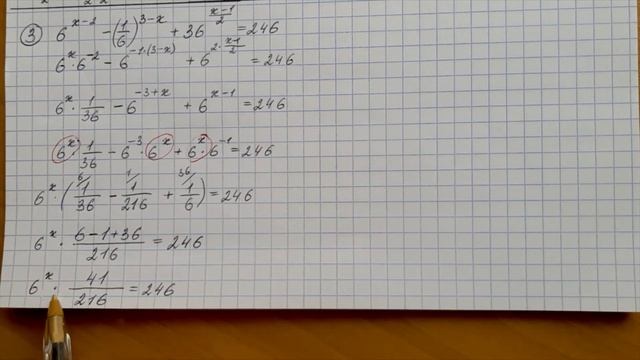 ③ 6^(x-2) - (1/6)^(3-x) + 36^((x-1)/2) = 246
6^x · 6^(-2) - 6^(-1·(3-x)) + 6^(2·(x-1)/2) = 246
6^x · 1/36 - 6^(-3+x) + 6^(x-1) = 246
6^x · 1/36 - 6^(-3) · 6^x + 6^x · 6^(-1) = 246
6^x · (6/ 1/36 - 1/ 1/216 + 36/ 1/6) = 246
6^x · (6-1+36)/216 = 246
6^x · 41/216 = 246